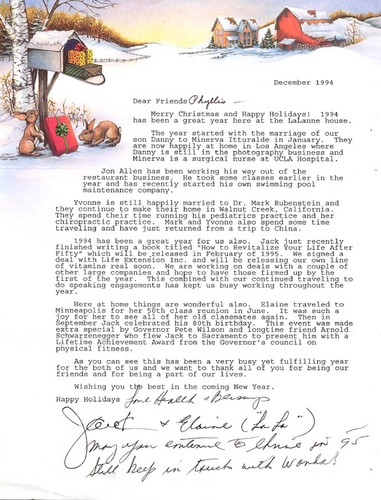 December 1994
Dear Friends Phyllis —
Merry Christmas and Happy Holidays! 1994
has been a great year here at the LaLanne house.
The year started with the marriage of our
son Danny to Minerva Itturalde in January. They
are now happily at home in Los Angeles where
Danny is still in the photography business and
Minerva is a surgical nurse at UCLA Hospital.
Jon Allen has been working his way out of the
restaurant business. He took some classes earlier in the
year and has recently started his own swimming pool
maintenance company.
Yvonne is still happily married to Dr. Mark Rubenstein and
they continue to make their home in Walnut Creek, California.
They spend their time running his pediatrics practice and her
chiropractic practice. Mark and Yvonne also spend some time
traveling and have just returned from a trip to China.
1994 has been a great year for us also. Jack just recently
finished writing a book titled "How to Revitalize Your Life After
Fifty" which will be released in February of 1995. We signed a
deal with Life Extension Inc. and will be releasing our own line
of vitamins real soon. We are working on deals with a couple of
other large companies and hope to have those firmed up by the
first of the year. This combined with our continued traveling to
do speaking engagements has kept us busy working throughout the
year.
Here at home things are wonderful also. Elaine traveled to
Minneapolis for her 50th class reunion in June. It was such a
joy for her to see all of her old classmates again. Then in
September Jack celebrated his 80th birthday. This event was made
extra special by Governor Pete Wilson and longtime friend Arnold
Schwarzenegger who flew Jack to Sacramento to present him with a
Lifetime Achievement Award from the Governor's council on
physical fitness.
As you can see this has been a very busy yet fulfilling year
for the both of us and we want to thank all of you for being our
friends and for being a part of our lives.
Wishing you the best in the coming New Year.
Happy Holidays Love Health & Blessings
Jack & Elaine ("LaLa")
May you continue to shine in 95
Still keep in touch with Wonha!